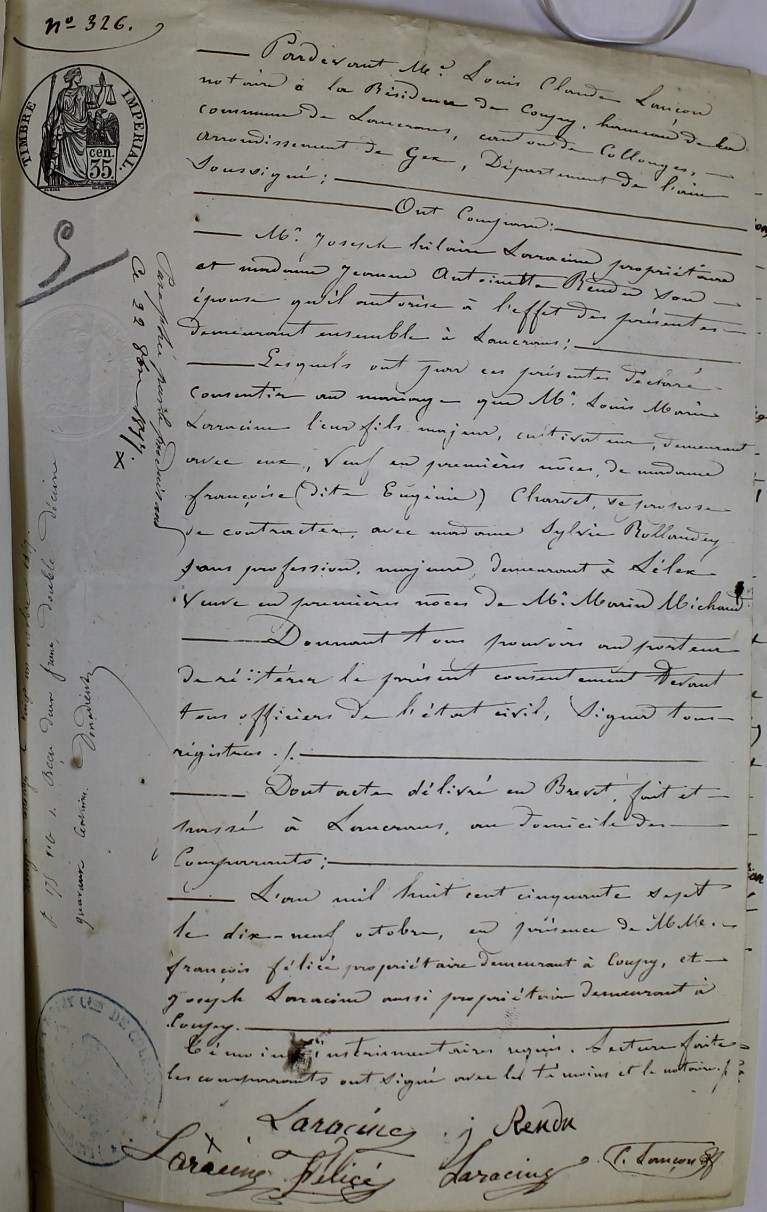 nº 326.
TIMBRE IMPERIAL.
cen. 35.
Pardevant Me. Louis Claude Lançon
notaire à la Résidence de Coupy, hameau de la
commune de Lancrans, canton de Collonges,
arrondissement de Gex, Département de l'ain
Soussigné;
Ont Comparu:
Mr. Joseph hilaire Larracine propriétaire
et madame Jeanne Antoinette Rendu son
épouse qu'il autorise à l'effet des présentes
demeurant ensemble à Lancrans;
Lesquels ont par ces présentes déclaré
consentir au mariage que Mr. Louis Marie
Larracine leur fils majeur, cultivateur, demeurant
avec eux, Veuf en premières nôces, de madame
françoise (dite Eugénie) Charvet, se propose
de contracter, avec madame Sylvie Rollandey
sans profession, majeure, demeurant à Lélex
Veuve en premières nôces de Mr. Marin Michaud
Donnant tous pouvoirs au porteur
de réïtérer le présent consentement devant
tous officiers de l'état civil, Signer tous
régistres ./.
Dont acte délivré en Brevet, fait et
passé à Lancrans, au domicile des
Comparants;
L'an mil huit cent cinquante sept
le dix-neuf octobre, en présence de MM.
françois félicé propriétaire demeurant à Coupy, et
Joseph Larracine aussi propriétaire demeurant à
Coupy.
témoins instrumentaires requis. Lecture faite
les comparants ont signé avec les témoins et le notaire ./.
Laracine j Rendu
Laracine félicé Laracine C. Lançon
Paraphé par le
Ce 22 8bre 1857.
octobre 1857
f. 175 reçu deux francs double décime
quarante centimes